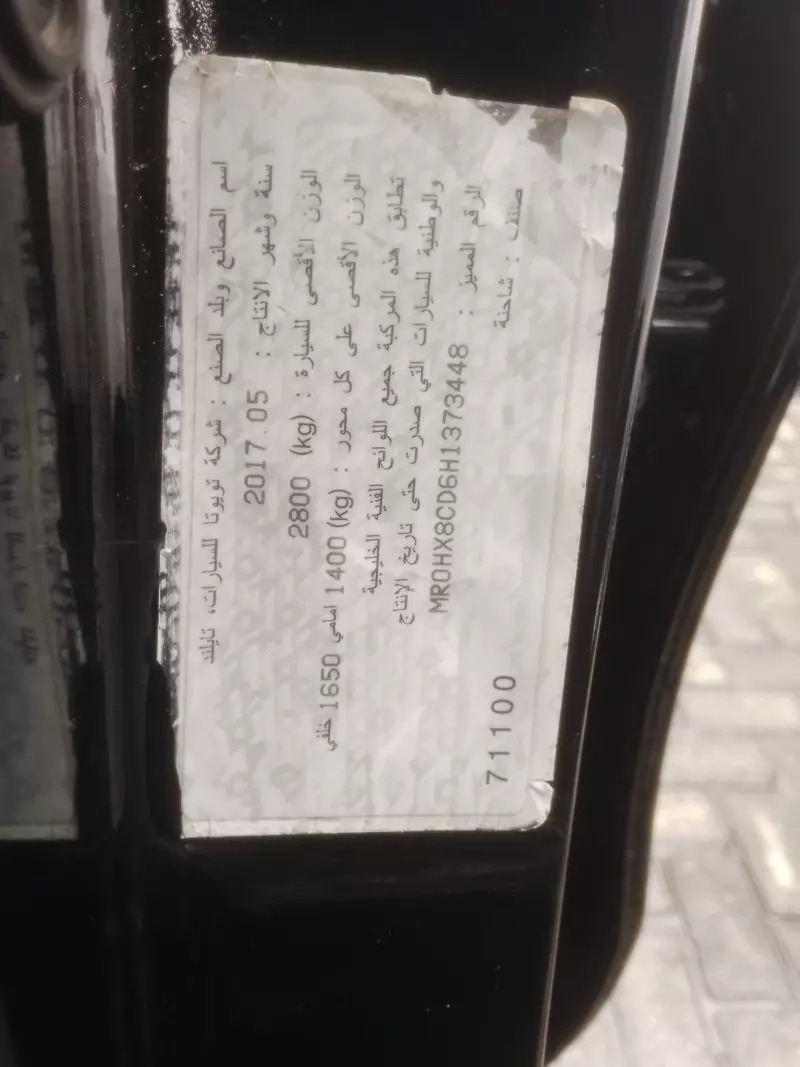 اسم الصانع وبلد الصنع : شركة تويوتا للسيارات، تايلند
سنة وشهر الانتاج : 2017.05
الوزن الأقصى للسيارة : 2800 (kg)
الوزن الأقصى على كل محور : 1400 (kg) امامي 1650 خلفي
تطابق هذه المركبة جميع اللوائح الفنية الخليجية
والوطنية للسيارات التي صدرت حتى تاريخ الإنتاج
الرقم المميز : MR0HX8CD6H1373448
صنف : شاحنة
71100